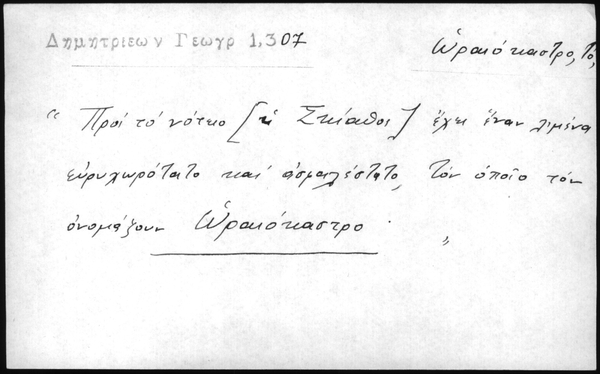 Δημητριεων Γεωγρ 1,307
Ὡραιόκαστρο, το,
"Πρός τό νότιο [ἡ Σκίαθος] ἔχει ἕναν λιμένα
εὐρυχωρότατο καί ἀσφαλέστατο, τόν ὁποῖο τόν
ὀνομάζουν Ὡραιόκαστρο. "